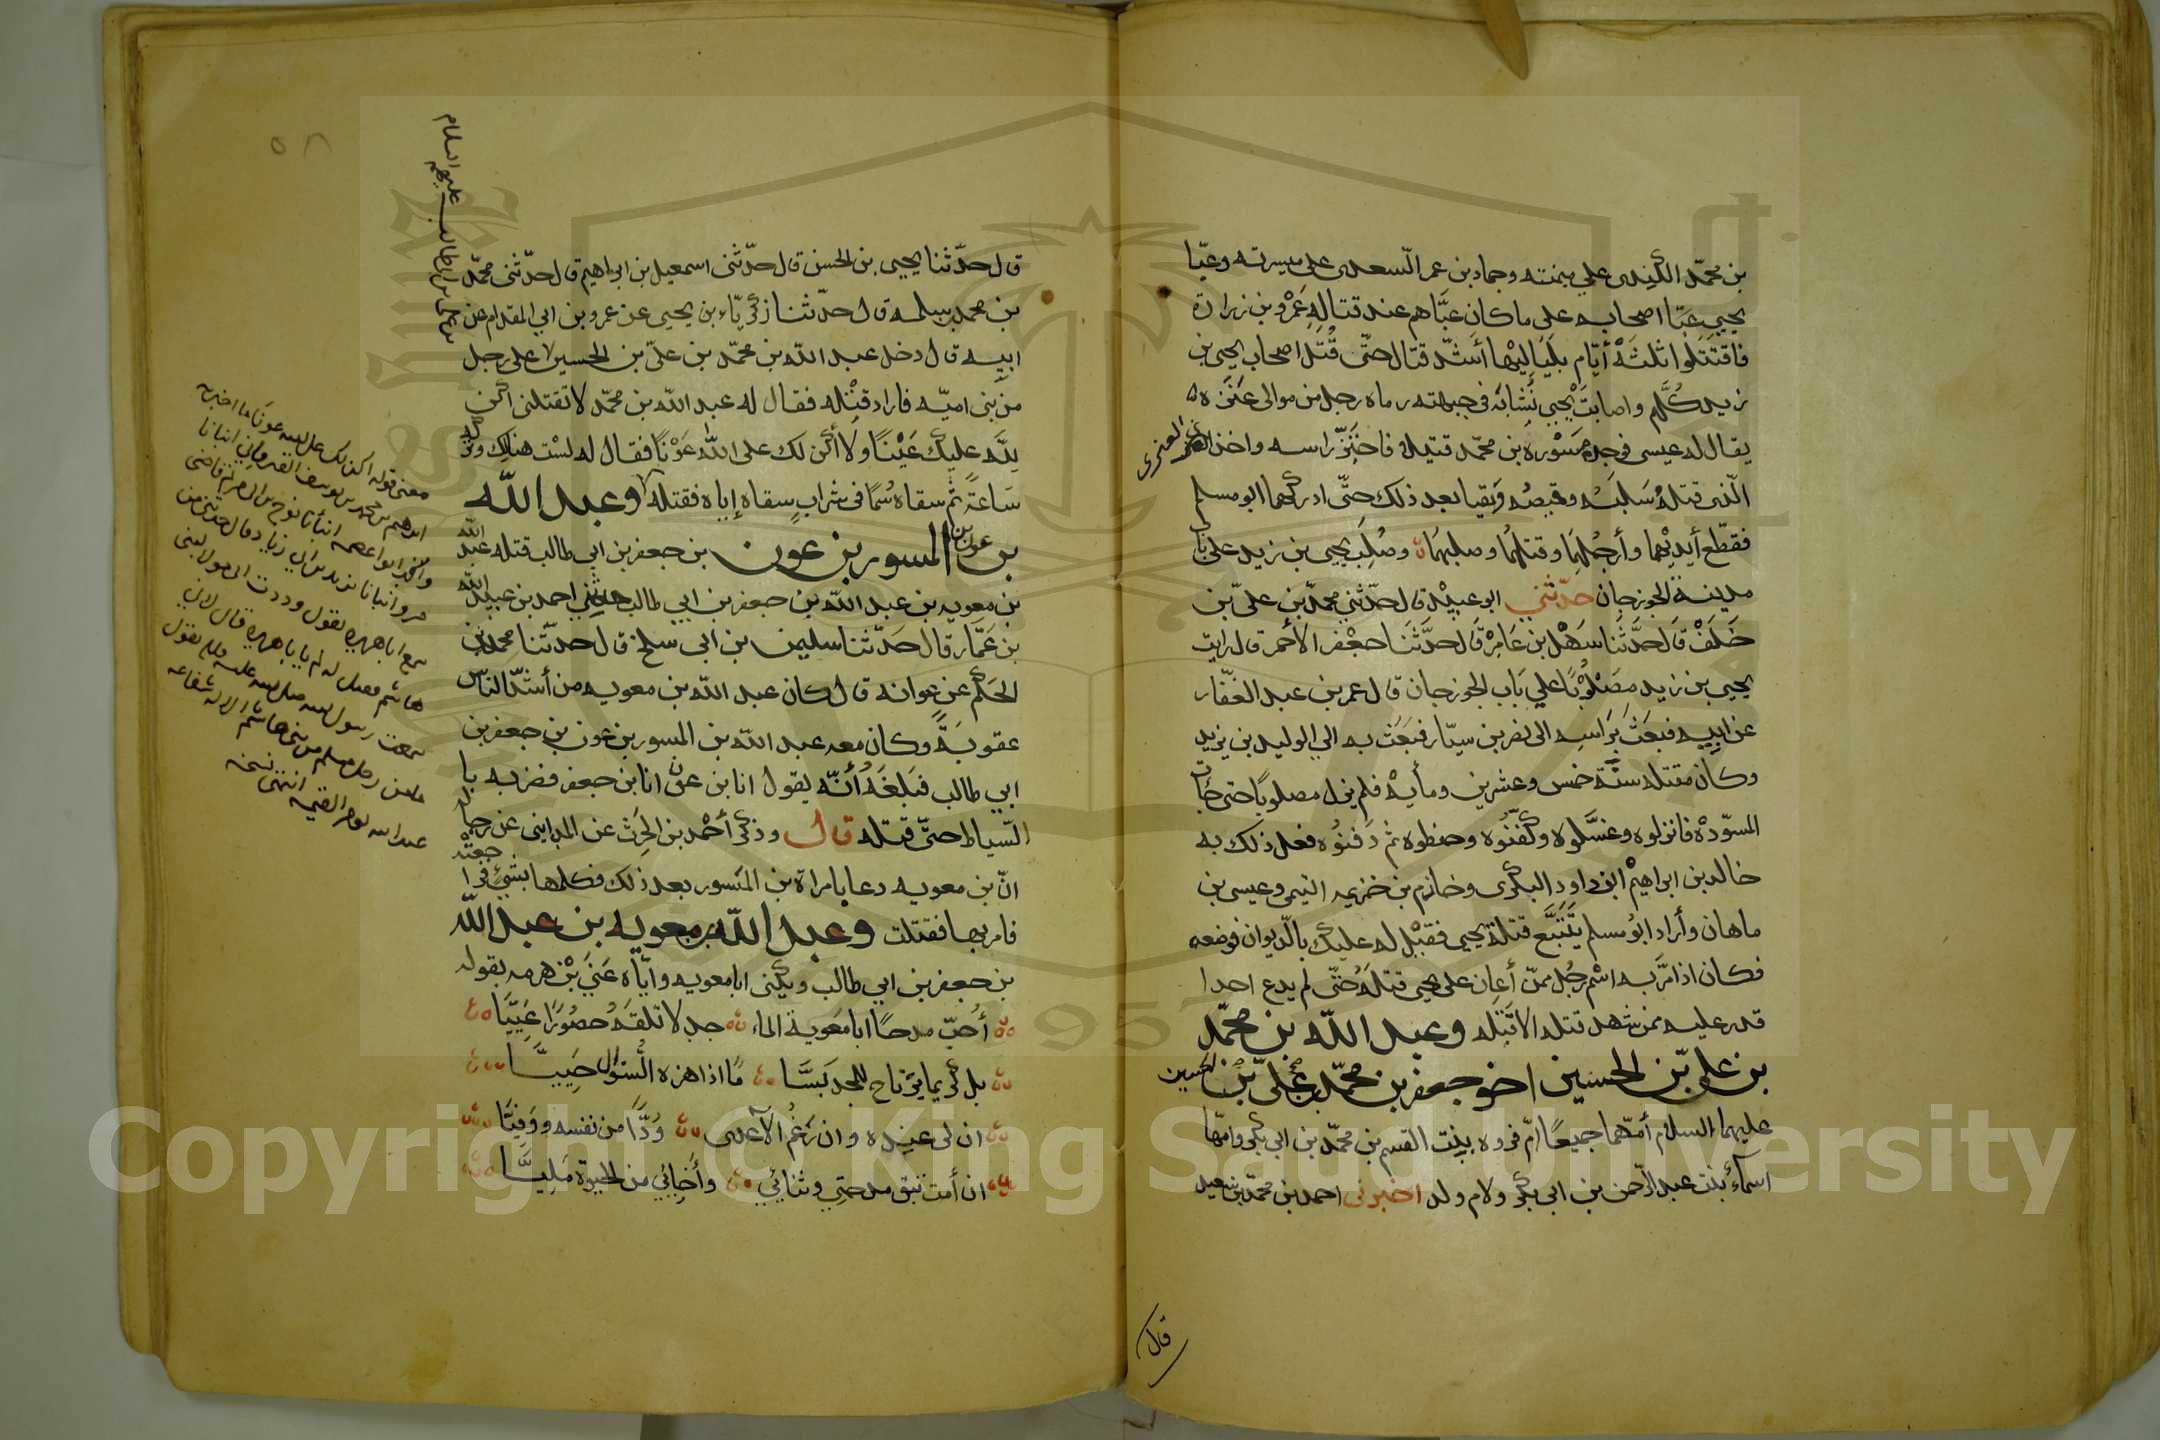 بن محمّد الكندى على ميمنته وحماد بن عمر السّعدى على ميسرته وعبّا
يحيى عبّا اصحابه على ما كان عبّاهم عند قتاله عَمْرو بن زرارة
فاقتتلوا ثلثة أيّام بلياليها أشدّ قتال حتّى قُتل اصحاب يحيى بن
زيد كلّهم واصابت يحيى نُشابه فى جبهته رماه رجل من موالى عنزه
يقال له عيسى فوجده سورة بن محمّد قتيلا فاحتزّ راسه واخذ
العنزى
الّذى قتله سلبَه وقميصه وبقيا بعد ذلك حتّى ادركهما ابو مسلم
فقطّع أيديهما وأرجلهما وقتلهما وصلبهما وصُلب يحيى بن زيد على باب
مدينة الجوزجان حدّثني ابو عبيد قال حدّثني محمّد بن علىّ بن
خَلَفْ قال حدَّثنا سَهْل بن عَامِرْ قال حدَّثنا جعْفر الأحمر قال رايت
يحيى بن زيد مصْلوُبًا على باب الجوزجان قال عمر بن عبد الغفّار
عن ابيه فبعَثَ برَاسِه الى نصر بن سيّار فبعَث به الى الوليد بن يزيد
وكان مقتله سنَّة خمس وعشرين ومأيه فلم يزل مصلوبًا حتى جَاءت
المسوّدة فانزلوه وغسَّلوه وكفّنوه وحنطوه ثم دَفنوُه فعل ذلك به
خالد بن ابراهيمْ ابو داود البكرى وخازم بن خزيمه التيمى وعيسى بن
ماهان وأراد ابوُ مسلم يتَتبَّع قتلة يحيى فقيْل له عليك بالدّيوان فوضعه
فكان اذا مرَّ به اسْم رجُل ممّن أعان على يحيى قتلَهُ حتّى لم يدع احدا
قدر عليه ممن شهد قتله الا قتَله وعبد اللّه بن محمّد
بن علىّ بن الحسين اخو جعفر بن محمّد بن علىّ بن الحسين
عليهما السلام أمّهما جميعًا امّ فروه ببنت القسم بن محمّد بن ابى بكر وامّها
اسماءُ بنت عبد الرّحمن بن ابى بكر ولام ولد اخبرنى احمد بن محمّد بن سعيد
قال
قال حدّثنا يحيى بن الحسن قال حدّثنى اسمعيل بن ابراهيم قال حدّثنى محمّد
بن محمد بن سلمه قال حدّثنا زكريّاء بن يحيى عن عمرو بن ابى المقدام عن
ابيه قال دخل عبد اللّه بن محمّد بن علىّ بن الحسين على رجل
من بنى اميّه فاراد قتْله فقال له عبد اللّه بن محمّد لا تقتلنى اكن
للّه عليك عَيْنًا ولا أكن لك على اللّه عَوْنًا فقال له لسْت هناك وتركه
سَاعةً ثم سقاه سُمًا فى شراب سقاه إياه فقتله وعبد اللّه
بن المسور بن عون بن جعفر بن ابى طالب قتله عبد اللّه
بن معويه بن عبد اللّه بن جعفر بن ابى طالب حدّثنى احمد بن عبيد اللّه
بن عَمَّار قال حَدّثنا سليمن بن ابى سلخ قال حدّثنا محمد بن
الحكم عن عوانه قال كان عبد اللّه بن معويه من أشدّ النّاس
عقوبَةً وكان معه عبد اللّه بن المسور بن عون بن جعفر بن
ابى طالب فبَلغَهُ أنّه يقول انا بن عون انا بن جعفر فضربه با
السّياط حتّى قتله قال وذكر أحْمد بن الحرث عن المداينى عن رجاله
انّ بن معويه دعا بامراة بن المسور بعد ذلك فكلمها بشئ فراجعته
فامر بها فقتلت وعبد اللّه بن معويه بن عبد اللّه
بن جعفر بن ابى طالب ويكنى ابا معويه وايّاه عَنىَ بْن هرمه بقوله
أحُبّ مدحًا ابا معَوية الماء جد لا تلقَهُ حصُورًا عَيِيَّا
بل كريما يرْتاح للمجد بَسَّا مًا اذا هزه السُّؤال حَييَّا
ان لى عنده وان رَغمُ الأعدى وُدًّا من نفسه ووَفيًّا
ان أمت تبق مدحتي وثنائي وأخائي من الحيوة مَليّاً
معنى قوله اكن لك على الله عونا ما اخبرنا
هاشم فقيل له لم يا ابا هريره قال لانى
سمعت رسول الله صلى الله عليه وسلم يقول
ما من رجل مسلم من بنى هاشم الا له شفاعه
عند الله يوم القيمه انتهى نسخه